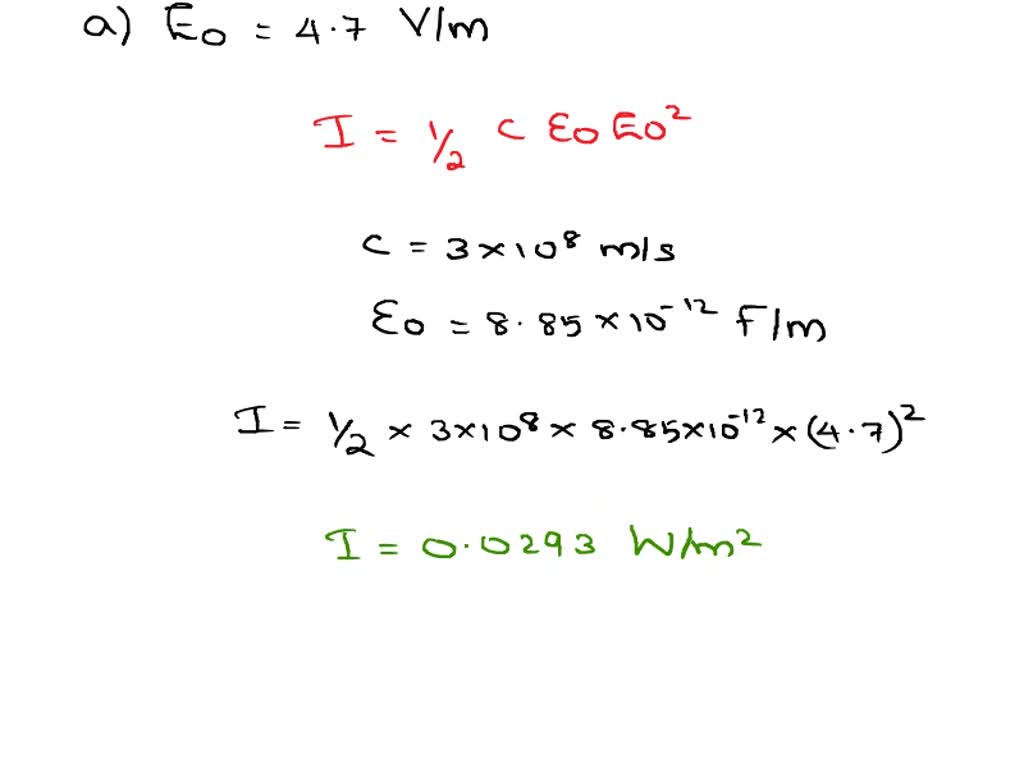 a) E0 = 4.7 V/m
I = 1/2 c ε0 E0²
c = 3×10⁸ m/s
ε0 = 8.85×10⁻¹² F/m
I = 1/2 × 3×10⁸ × 8.85×10⁻¹² × (4.7)²
I = 0.0293 W/m²